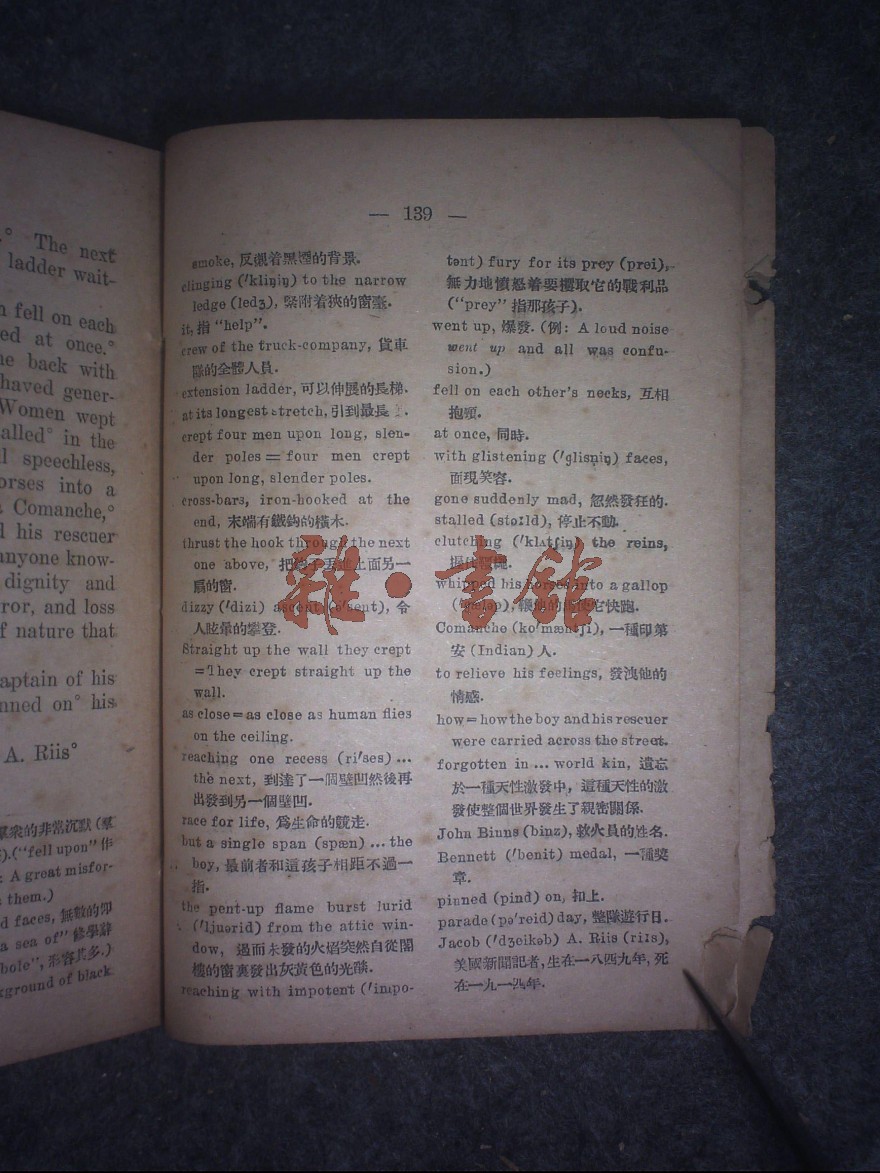 ° The next
ladder wait-
fell on each
ed at once.°
he back with
haved gener-
Women wept
alled° in the
l speechless,
orses into a
a Comanche,°
d his rescuer
anyone know-
dignity and
rror, and loss
f nature that
aptain of his
nned on° his
A. Riis°
羣衆的非常沉默 (羣
).("fell upon" 作
: A great misfor-
them.)
d faces, 無數的仰
a sea of" 修學辭
bole", 形容其多.)
kground of black
— 139 —
smoke, 反襯着黑煙的背景.
clinging ('kliŋiŋ) to the narrow
ledge (ledʒ), 緊附着狹的窗臺.
it, 指 "help".
crew of the truck-company, 貨車
隊的全體人員.
extension ladder, 可以伸展的長梯.
at its longest stretch, 引到最長
crept four men upon long, slen-
der poles = four men crept
upon long, slender poles.
cross-bars, iron-hooked at the
end, 末端有鐵鈎的橫木.
thrust the hook through the next
one above, 把 上面另一
扇的窗.
dizzy ('dizi) ascent (ə'sent), 令
人眩暈的攀登.
Straight up the wall they crept
=They crept straight up the
wall.
as close = as close as human flies
on the ceiling.
reaching one recess (ri'ses) ...
the next, 到達了一個壁凹然後再
出發到另一個壁凹.
race for life, 爲生命的競走.
but a single span (spæn) ... the
boy, 最前者和這孩子相距不過一
指.
the pent-up flame burst lurid
('ljuərid) from the attic win-
dow, 遏而未發的火焰突然自從閣
樓的窗裏發出灰黃色的光燄.
reaching with impotent ('impo-
tənt) fury for its prey (prei),
無力地憤怒着要攫取它的戰利品
("prey" 指那孩子).
went up, 爆發. (例: A loud noise
went up and all was confu-
sion.)
fell on each other's necks, 互相
抱頸.
at once, 同時.
with glistening ('glisniŋ) faces,
面現笑容.
gone suddenly mad, 忽然發狂的.
stalled (stɔːld), 停止不動.
clutching ('klʌtʃiŋ) the reins,
握住韁繩.
whipped his horses into a gallop
('gæləp), 快跑.
Comanche (ko'mæntʃi), 一種印第
安 (Indian) 人.
to relieve his feelings, 發洩他的
情感.
how = how the boy and his rescuer
were carried across the street.
forgotten in ... world kin, 遺忘
於一種天性激發中, 這種天性的激
發使整個世界發生了親密關係.
John Binns (binz), 救火員的姓名.
Bennett ('benit) medal, 一種獎
章.
pinned (pind) on, 扣上.
parade (pə'reid) day, 整隊遊行日.
Jacob ('dʒeikəb) A. Riis (riːs),
美國新聞記者, 生在一八四九年, 死
在一九一四年.
雜·書館